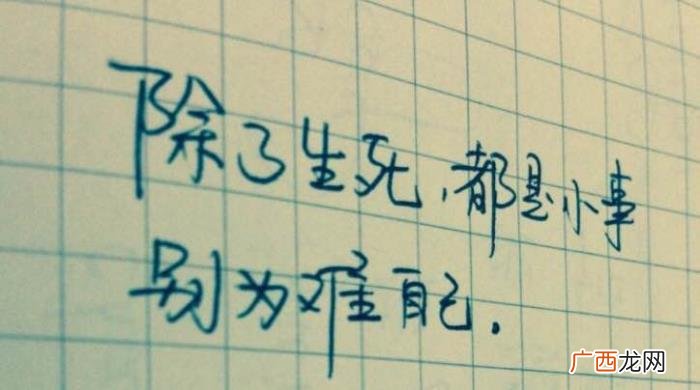 除了生死,都是小事
别为难自己.
广西龙网